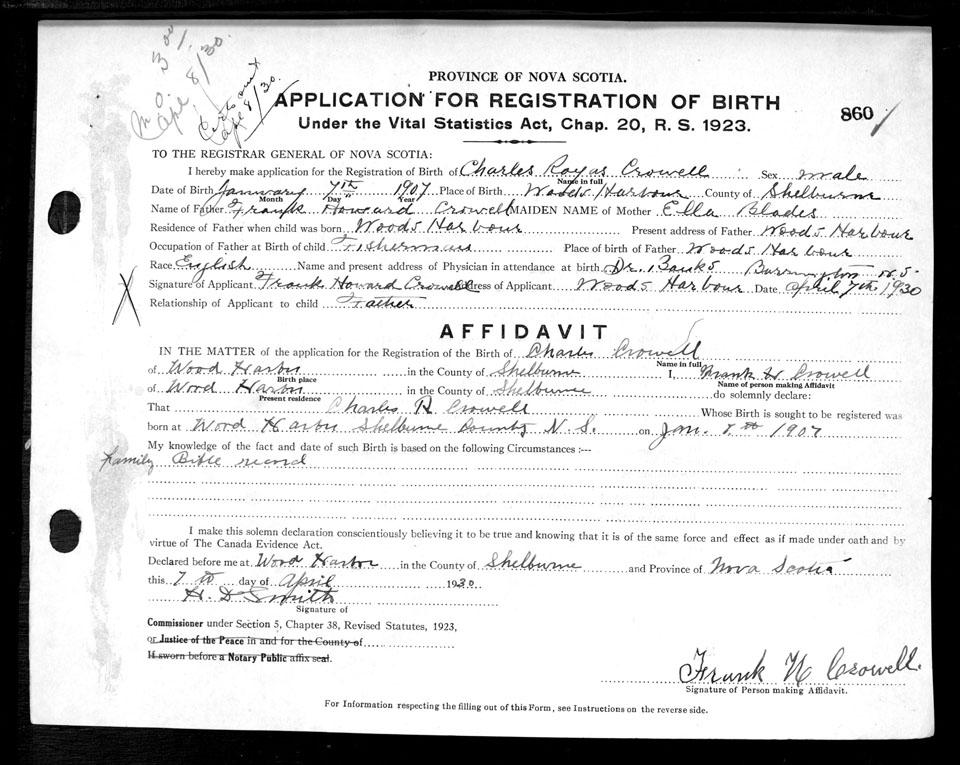 3 00/.
8/30.
M O.
Ape
Ape 8/30.
PROVINCE OF NOVA SCOTIA.
APPLICATION FOR REGISTRATION OF BIRTH
860
Under the Vital Statistics Act, Chap. 20, R. S. 1923.
TO THE REGISTRAR GENERAL OF NOVA SCOTIA:
I hereby make application for the Registration of Birth of Charles Crowell Sex male
Name in full
Date of Birth January 7th 1907 Place of Birth Woods Harbour County of Shelburne
Month Day Year
Name of Father Frank Howard Crowell MAIDEN NAME of Mother Ella Blades
Residence of Father when child was born Woods Harbour Present address of Father Woods Harbour
Occupation of Father at Birth of child Fisherman Place of birth of Father Woods Harbour
Race English Name and present address of Physician in attendance at birth Dr. Banks Barrington N.S.
Signature of Applicant Frank Howard Crowell Address of Applicant Woods Harbour Date April 7th 1930
Relationship of Applicant to child Father
AFFIDAVIT
IN THE MATTER of the application for the Registration of the Birth of Charles Crowell
Name in full
of Wood Harbor in the County of Shelburne I, Frank H Crowell
Birth place Name of person making Affidavit
of Wood Harbor in the County of Shelburne do solemnly declare:
Present residence
That Charles R Crowell Whose Birth is sought to be registered was
born at Wood Harbor Shelburne County N.S. on Jan. 7th 1907
My knowledge of the fact and date of such Birth is based on the following Circumstances :—
Family Bible record
I make this solemn declaration conscientiously believing it to be true and knowing that it is of the same force and effect as if made under oath and by
virtue of The Canada Evidence Act.
Declared before me at Wood Harbor in the County of Shelburne and Province of Nova Scotia
this 7th day of April 1930
H. D Smith
Signature of
Commissioner under Section 5, Chapter 38, Revised Statutes, 1923,
or Justice of the Peace in and for the County of
If sworn before a Notary Public affix seal.
Frank H Crowell.
Signature of Person making Affidavit.
For Information respecting the filling out of this Form, see Instructions on the reverse side.